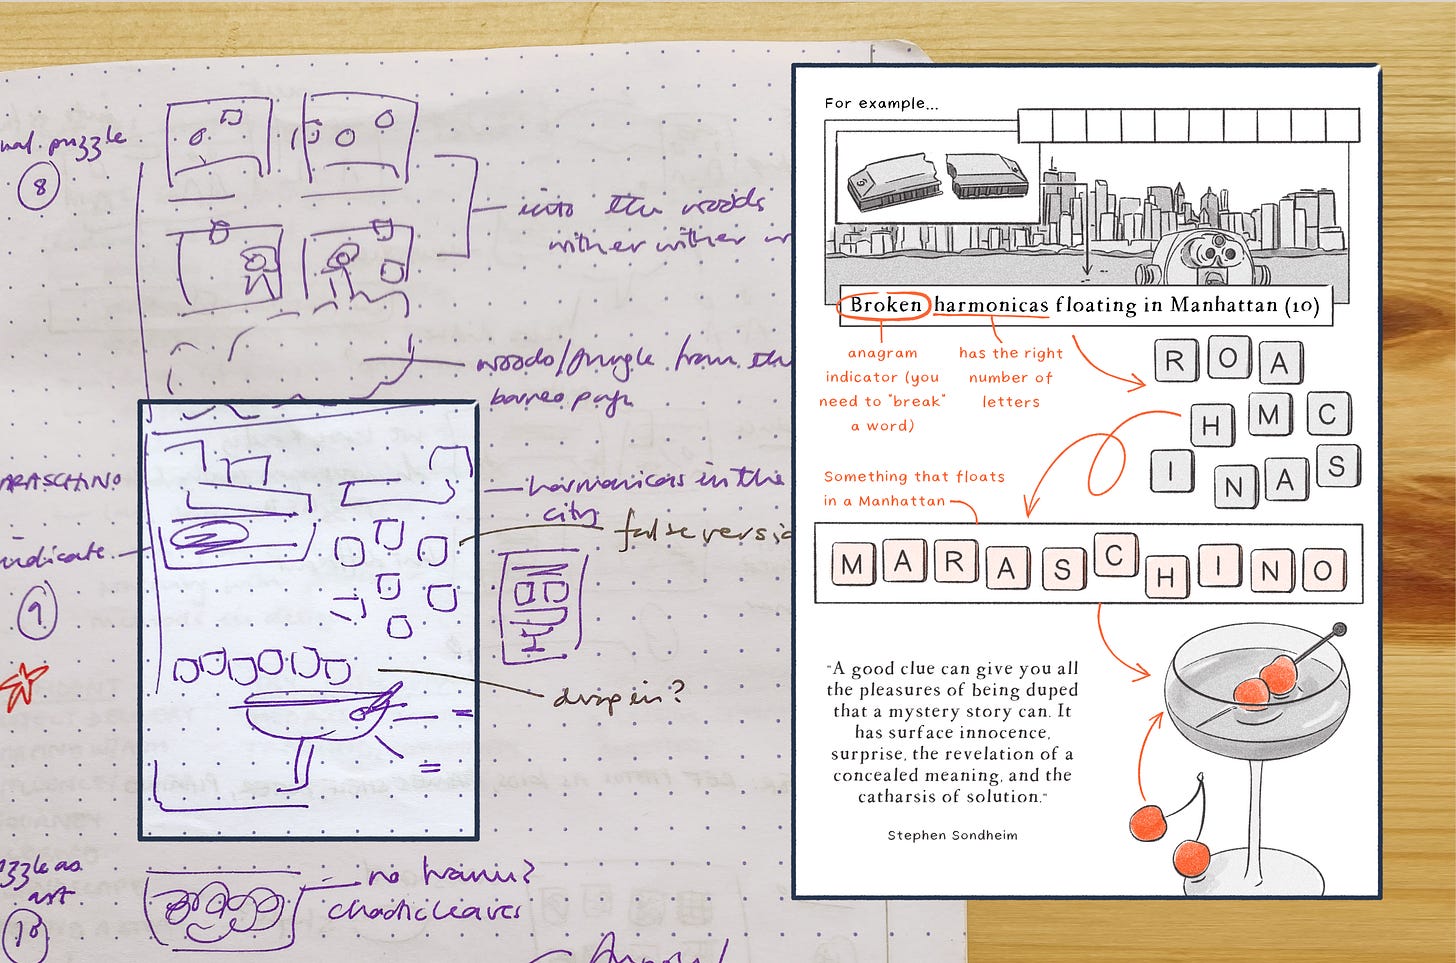 nal. puzzle
8
into the woods
wither wither
woods/jungle from the
borneo page
ARASCHINO
indicate
9
harmonicas in the
city
false versio
drop in?
zzle as
art
10
no harm?
chaotic leaves
For example...
Broken harmonicas floating in Manhattan (10)
anagram
indicator (you
need to "break"
a word)
has the right
number of
letters
R O A
H M C
I N A S
Something that floats
in a Manhattan
M A R A S C H I N O
"A good clue can give you all
the pleasures of being duped
that a mystery story can. It
has surface innocence,
surprise, the revelation of a
concealed meaning, and the
catharsis of solution."
Stephen Sondheim